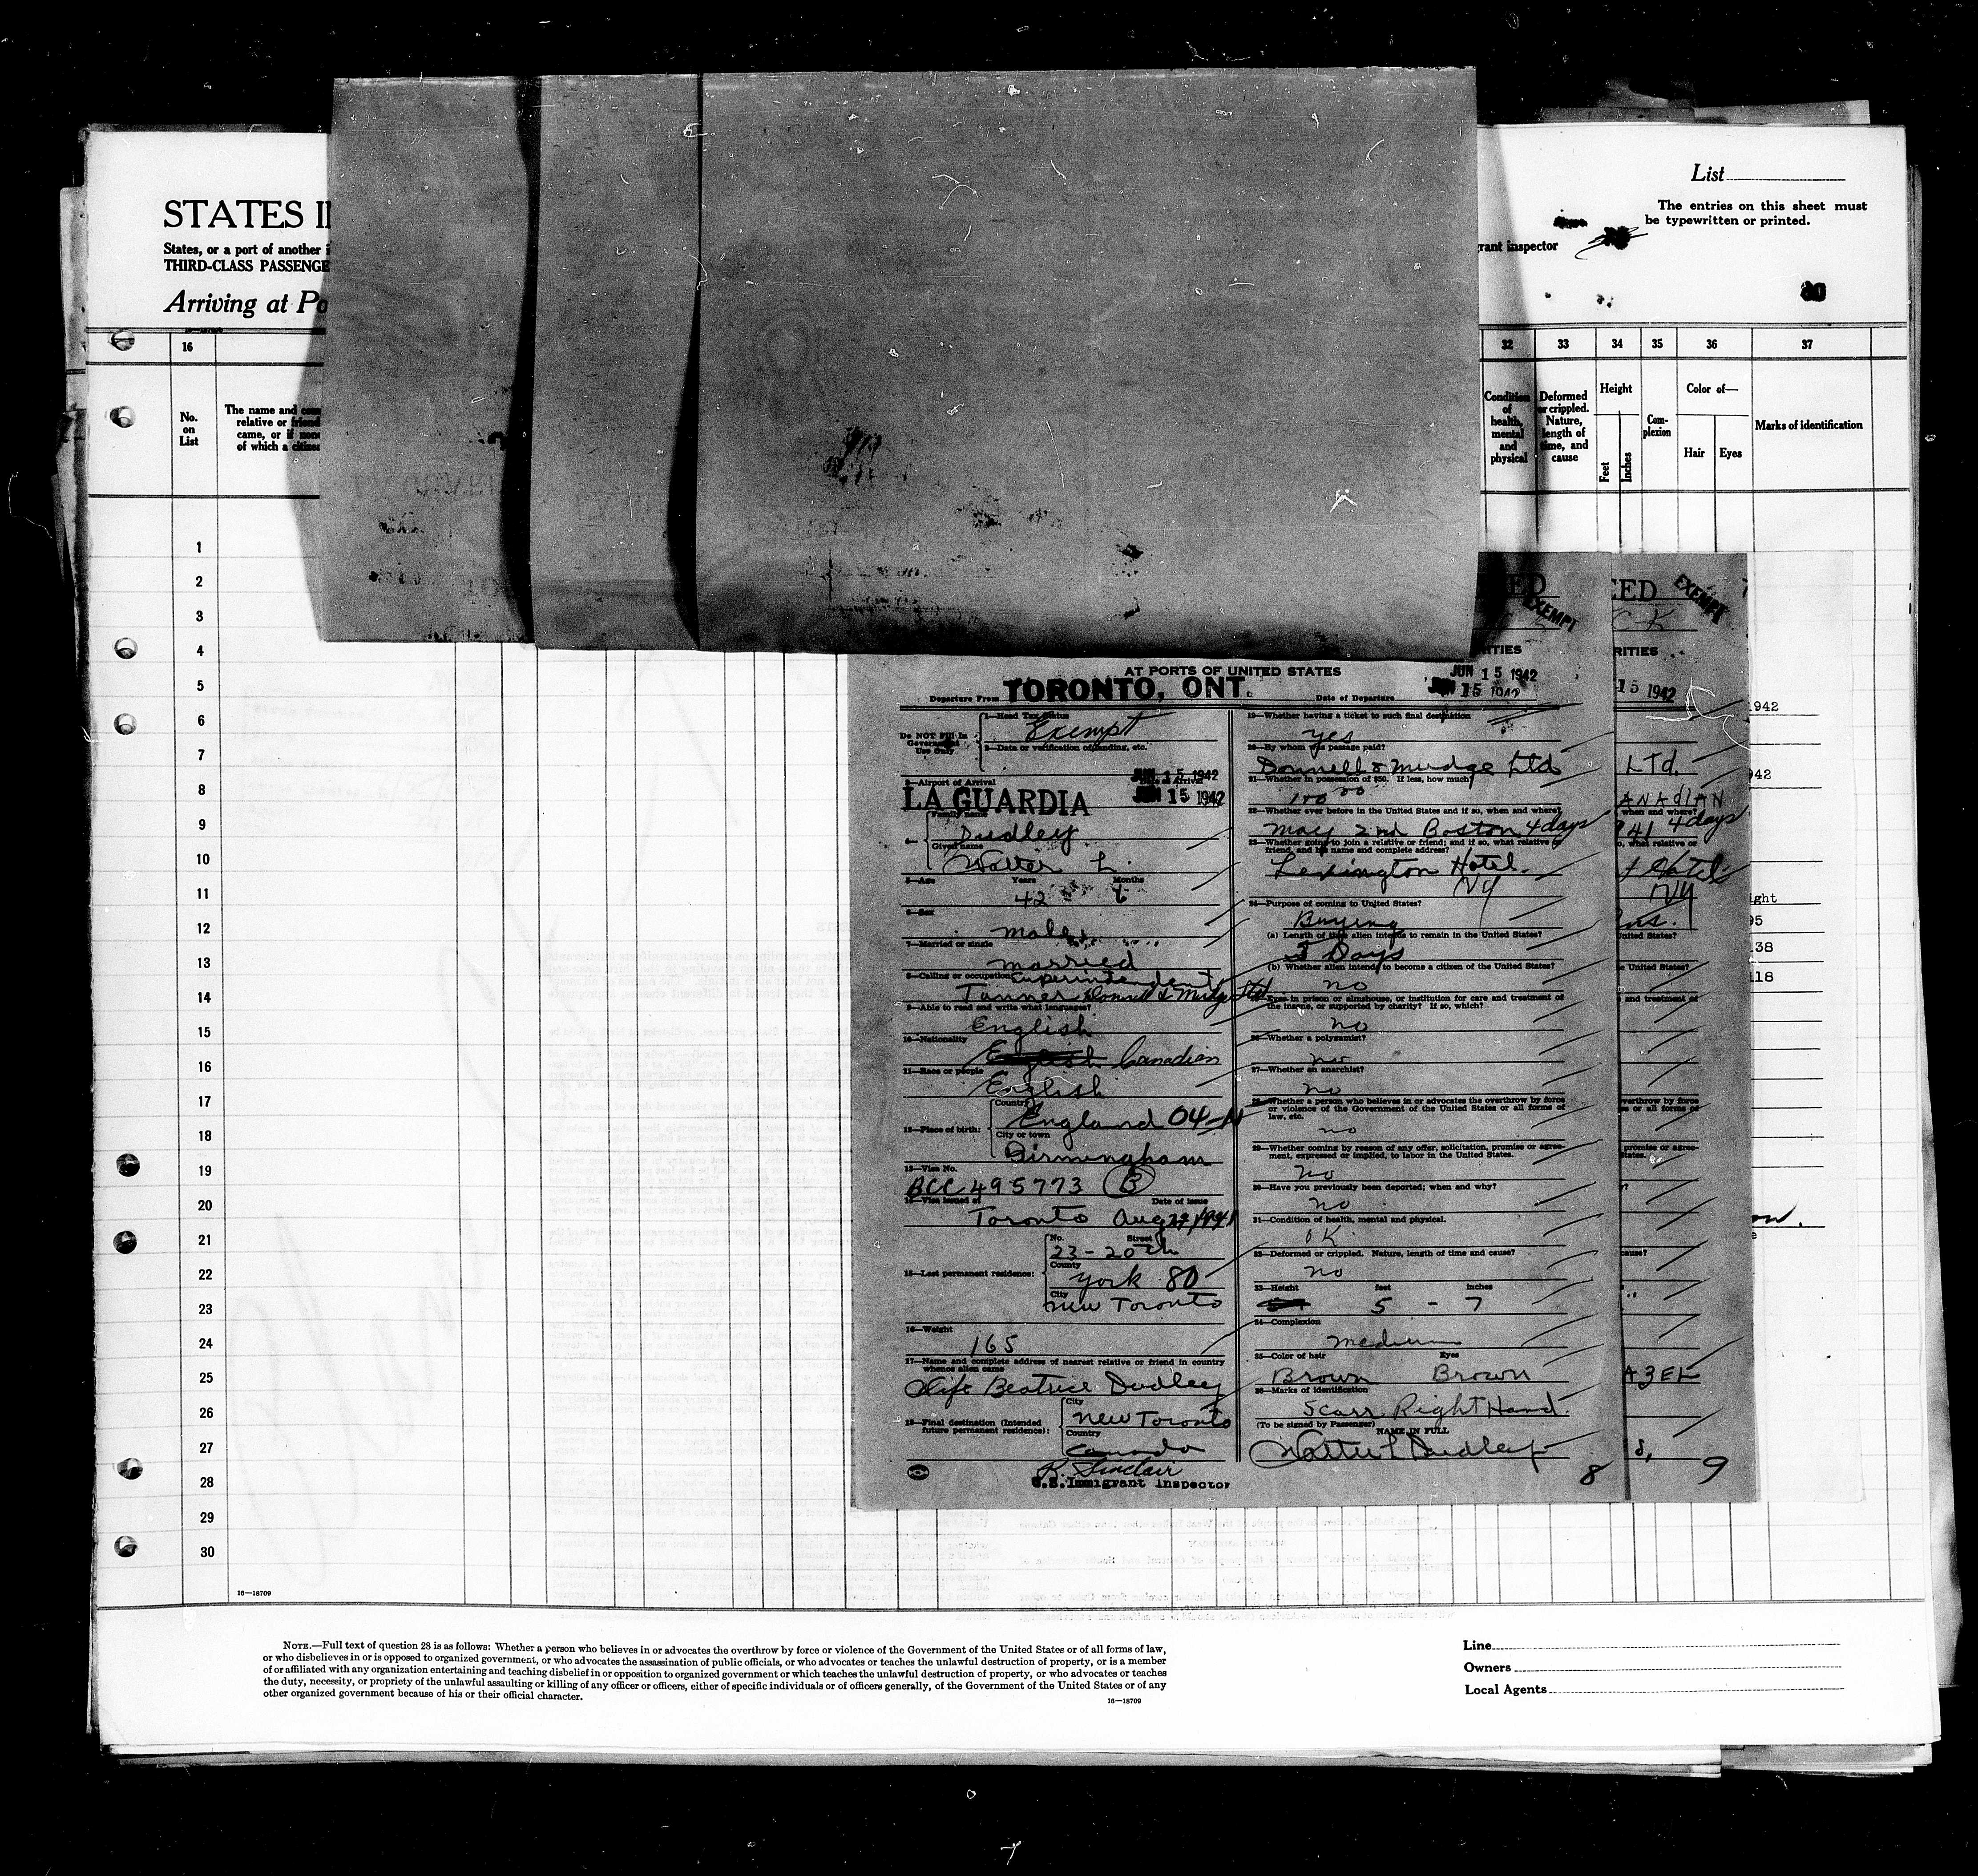 List
The entries on this sheet must
be typewritten or printed.
STATES
States, or a port of another
THIRD-CLASS PASSENGE
Arriving at Po
grant inspector
16
32 33 34 35 36 37
No.
on
List
The name and
relative or friend
came, or if none
of which a citizen
Condition
of
health,
mental
and
physical
Deformed
or crippled.
Nature,
length of
time, and
cause
Height
Feet
Inches
Com-
plexion
Color of—
Hair
Eyes
Marks of identification
1
2
3
4
5
6
7
8
9
10
11
12
13
14
15
16
17
18
19
20
21
22
23
24
25
26
27
28
29
30
16—18709
EXEMPT
AT PORTS OF UNITED STATES
JUN 15 1942
Departure From TORONTO, ONT.
Date of Departure JUN 15 1942
Do NOT Fill In
Government
Use Only
1—Head Tax Status
Exempt
2—Data or verification of landing, etc.
JUN 15 1942
3—Airport of Arrival
Date of Arrival
LA GUARDIA JUN 15 1942
4—
Family name
Dudley
Given name
Walter L
5—Age Years Months
42
6—Sex
male
7—Married or single
married
8—Calling or occupation
Superintendent
Tanner Donnell & Mudge Ltd
9—Able to read and write what languages?
English
10—Nationality
English Canadian
11—Race or people
English
12—Place of birth:
Country
England 04-N
City or town
Birmingham
13—Visa No.
BCC 495773 B
14—Visa issued at Date of issue
Toronto Aug 29/1941
15—Last permanent residence:
No. Street
23 - 20th
County
York 80
City
New Toronto
16—Weight
165
17—Name and complete address of nearest relative or friend in country
whence alien came
Wife Beatrice Dudley
18—Final destination (Intended
future permanent residence):
City
New Toronto
Country
Canada
R. Sinclair
U.S. Immigrant Inspector
19—Whether having a ticket to such final destination
yes
20—By whom was passage paid?
Donnell & Mudge Ltd
21—Whether in possession of $50. If less, how much?
100 00
22—Whether ever before in the United States and if so, when and where?
May 2nd Boston 4 days
23—Whether going to join a relative or friend; and if so, what relative or
friend, and his name and complete address?
Lexington Hotel.
NY
24—Purpose of coming to United States?
Buying
(a) Length of time alien intends to remain in the United States?
3 Days
(b) Whether alien intends to become a citizen of the United States?
no
25—Ever in prison or almshouse, or institution for care and treatment of
the insane, or supported by charity? If so, which?
no
26—Whether a polygamist?
no
27—Whether an anarchist?
no
28—Whether a person who believes in or advocates the overthrow by force
or violence of the Government of the United States or all forms of
law, etc.
no
29—Whether coming by reason of any offer, solicitation, promise or agree-
ment, expressed or implied, to labor in the United States.
no
30—Have you previously been deported; when and why?
no
31—Condition of health, mental and physical.
OK
32—Deformed or crippled. Nature, length of time and cause?
no
33—Height feet inches
5 - 7
34—Complexion
medium
35—Color of hair Eyes
Brown Brown
36—Marks of identification
Scar Right Hand
(To be signed by Passenger)
NAME IN FULL
Walter L Dudley
8
EED
EXEMPT
CK
RITIES
15 1942
LTd.
ANAdIAN
when and where?
941 4 days
o, what relative or
t Hotel
NY
United States?
e United States?
and treatment of
overthrow by force
s or all forms of
promise or agree-
States.
cause?
AZEL
9
1942
942
ight
95
138
118
NOTE.—Full text of question 28 is as follows: Whether a person who believes in or advocates the overthrow by force or violence of the Government of the United States or of all forms of law,
or who disbelieves in or is opposed to organized government, or who advocates the assassination of public officials, or who advocates or teaches the unlawful destruction of property, or is a member
of or affiliated with any organization entertaining and teaching disbelief in or opposition to organized government or which teaches the unlawful destruction of property, or who advocates or teaches
the duty, necessity, or propriety of the unlawful assaulting or killing of any officer or officers, either of specific individuals or of officers generally, of the Government of the United States or of any
other organized government because of his or their official character.
16—18709
Line
Owners
Local Agents